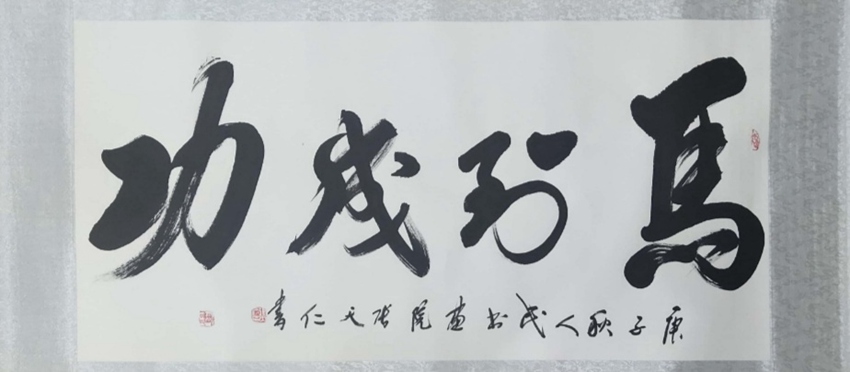 馬到成功
庚子秋人民书画院张仁書